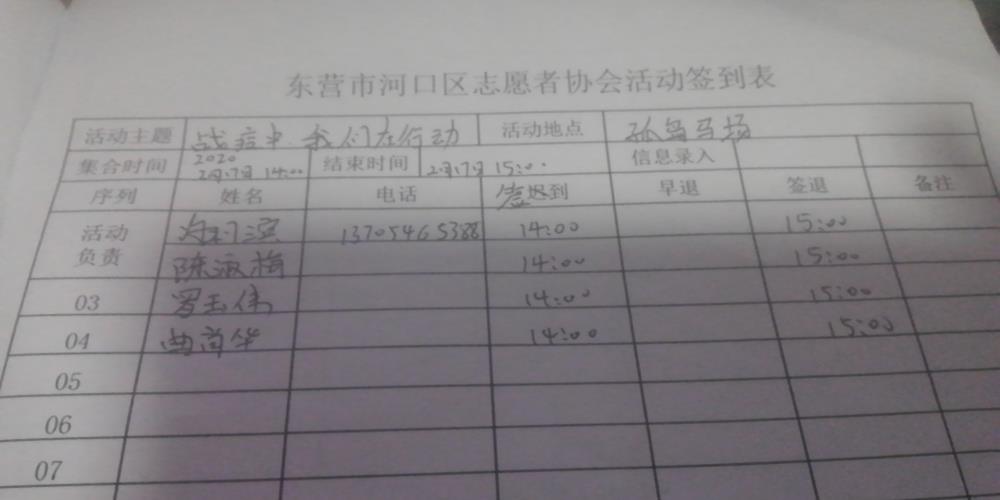 东营市河口区志愿者协会活动签到表
活动主题 战疫中 我们在行动 活动地点 孤岛马场
集合时间 2020 2月17日 14:00 结束时间 2月17日 15:00 信息录入
序列 姓名 电话 签迟到 早退 签退 备注
活动负责 13705465388 14:00 15:00
陈淑梅 14:00 15:00
03 罗玉伟 14:00 15:00
04 曲尚华 14:00 15:00
05
06
07